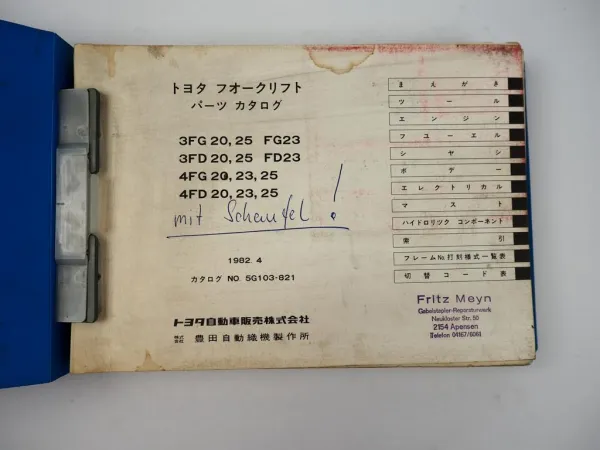 トヨタ フオークリフト
パーツ カタログ
3FG 20, 25 FG23
3FD 20, 25 FD23
4FG 20, 23, 25
4FD 20, 23, 25
mit Schaufel!
1982. 4
カタログ NO. 5G103-821
トヨタ自動車販売株式会社
株式会社 豊田自動織機製作所
まえがき
ツール
エンジン
フユーエル
シヤシ
ボデー
エレクトリカル
マスト
ハイドロリツク コンポーネント
索引
フレームNo.打刻様式一覧表
切替コード表
Fritz Meyn
Gabelstapler-Reparaturwerk
Neukloster Str. 50
2154 Apensen
Telefon 04167/6061